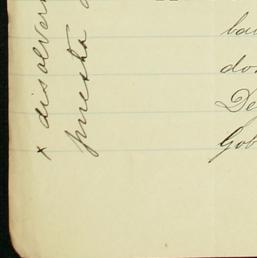 x disolver
puesta
ba
do
De
Gob